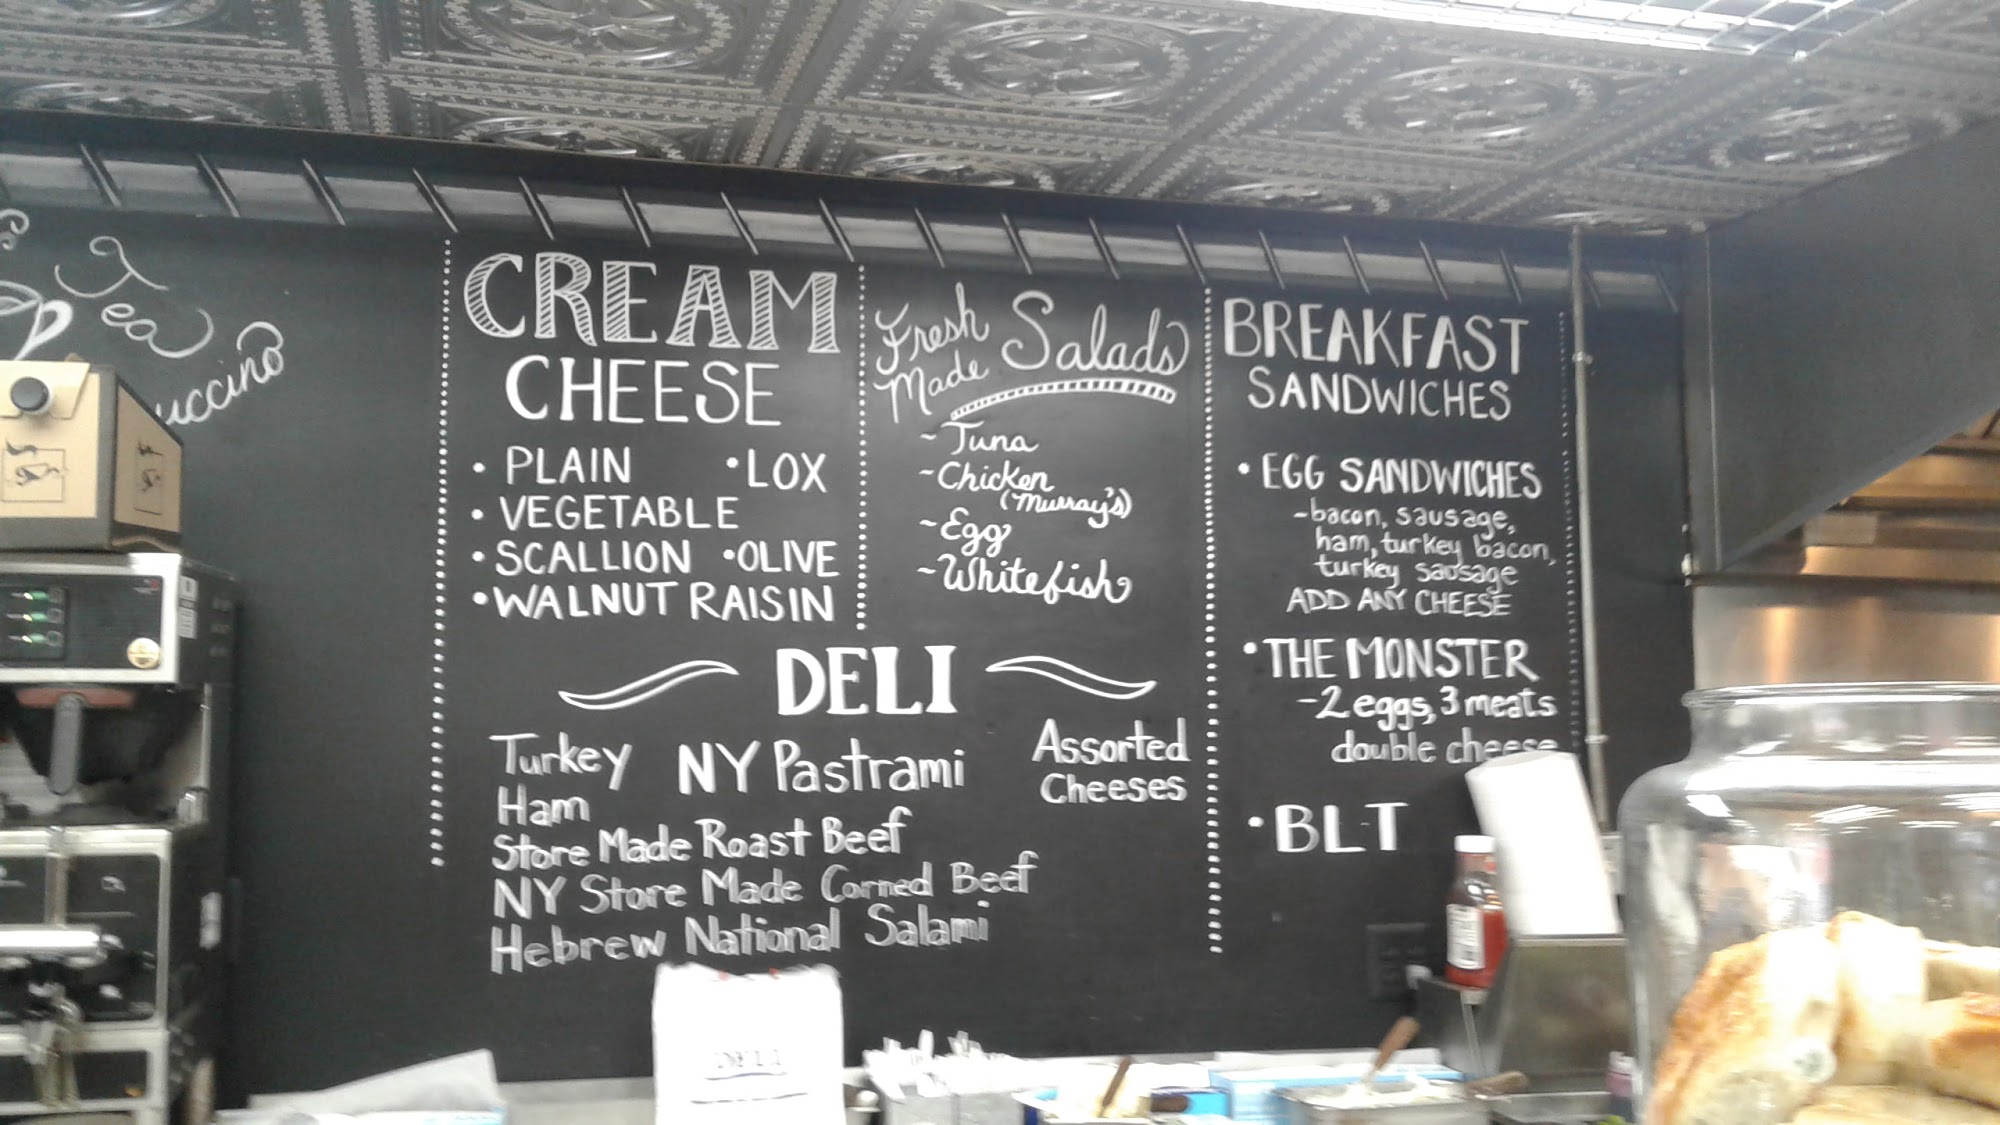 Tea
CREAM
CHEESE
• PLAIN •LOX
• VEGETABLE
• SCALLION •OLIVE
•WALNUT RAISIN
Fresh
Made Salads
~Tuna
~Chicken
(Murray's)
~Egg
~Whitefish
BREAKFAST
SANDWICHES
• EGG SANDWICHES
-bacon, sausage,
ham, turkey bacon,
turkey sausage
ADD ANY CHEESE
•THE MONSTER
-2 eggs, 3 meats
double cheese
•BLT
DELI
Turkey NY Pastrami
Assorted
Cheeses
Ham
Store Made Roast Beef
NY Store Made Corned Beef
Hebrew National Salami
DELI